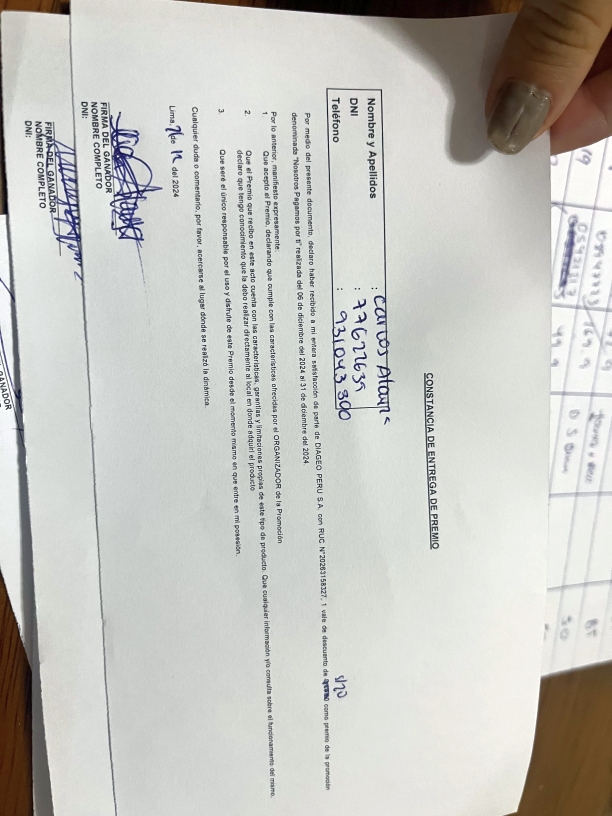 CONSTANCIA DE ENTREGA DE PREMIO
Nombre y Apellidos : Carlos
DNI : 77622639
Teléfono : 931043300
Por medio del presente documento, declaro haber recibido a mi entera satisfacción de parte de DIAGEO PERU S.A. con RUC N°20263158327, 1 vale de descuento de S/20 como premio de la promoción
denominada "Nosotros Pagamos por ti" realizada del 06 de diciembre del 2024 al 31 de diciembre del 2024.
Por lo anterior, manifiesto expresamente:
1. Que acepto el Premio, declarando que cumple con las características ofrecidas por el ORGANIZADOR de la Promoción
2. Que el Premio que recibo en este acto cuenta con las características, garantías y limitaciones propias de este tipo de producto. Que cualquier información y/o consulta sobre el funcionamiento del mismo,
declaro que tengo conocimiento que la debo realizar directamente al local en donde adquirí el producto
3. Que seré el único responsable por el uso y disfrute de este Premio desde el momento mismo en que entre en mi posesión.
Cualquier duda o comentario, por favor, acercarse al lugar donde se realizó la dinámica.
Lima, 7 de 12 del 2024
FIRMA DEL GANADOR
NOMBRE COMPLETO
DNI:
FIRMA DEL GANADOR
NOMBRE COMPLETO
DNI:
GANADOR